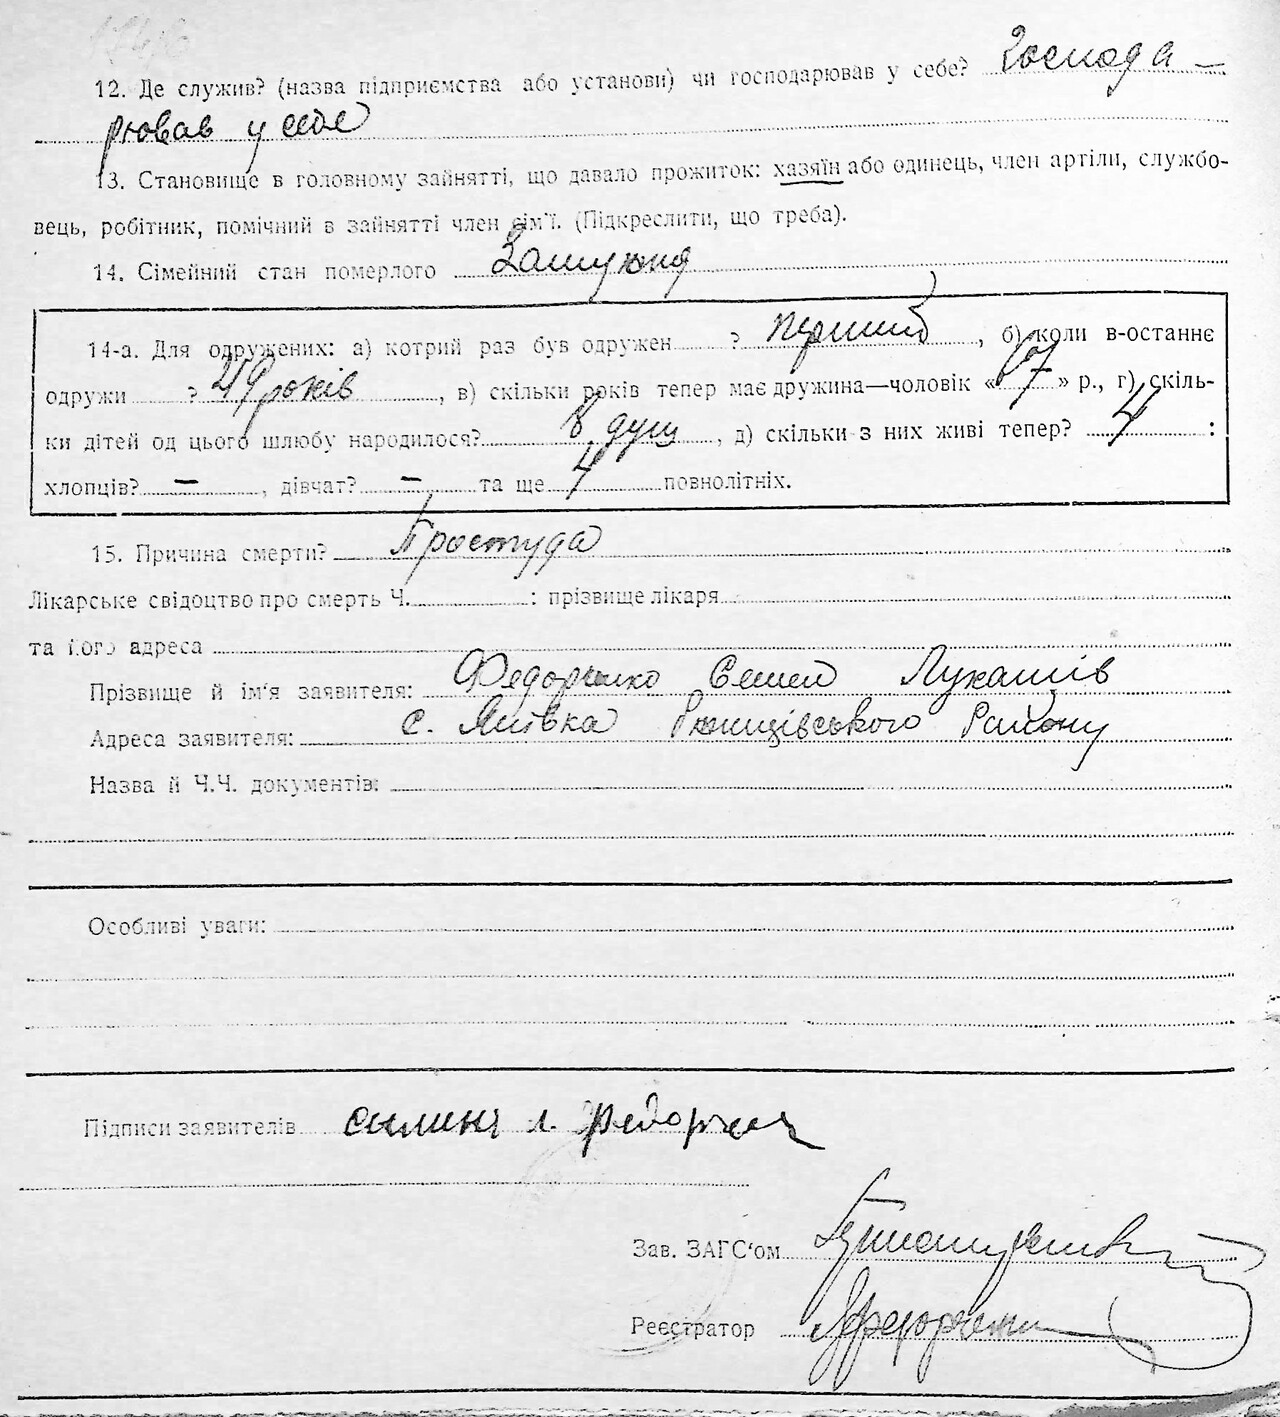 12. Де служив? (назва підприємства або установи) чи господарював у себе? Господа-
рював у себе
13. Становище в головному зайнятті, що давало прожиток: хазяїн або одинець, член артіли, службо-
вець, робітник, помічний в зайнятті член сім'ї. (Підкреслити, що треба).
14. Сімейний стан померлого Замужня
14-а. Для одружених: а) котрий раз був одружен ? перший, б) коли в-останнє
одружи ? 49 років, в) скільки років тепер має дружина—чоловік «67» р., г) скіль-
ки дітей од цього шлюбу народилося? 8 душ, д) скільки з них живі тепер? 4 :
хлопців? —, дівчат? —, та ще 4 повнолітніх.
15. Причина смерти? Простуда
Лікарське свідоцтво про смерть Ч. : прізвище лікаря
та його адреса
Прізвище й ім'я заявителя: Федорченко Семен Лукашів
Адреса заявителя: с. Янівка Ржищівського Району
Назва й Ч.Ч. документів:
Особливі уваги:
Підписи заявителів л.
Зав. ЗАГС'ом
Реєстратор